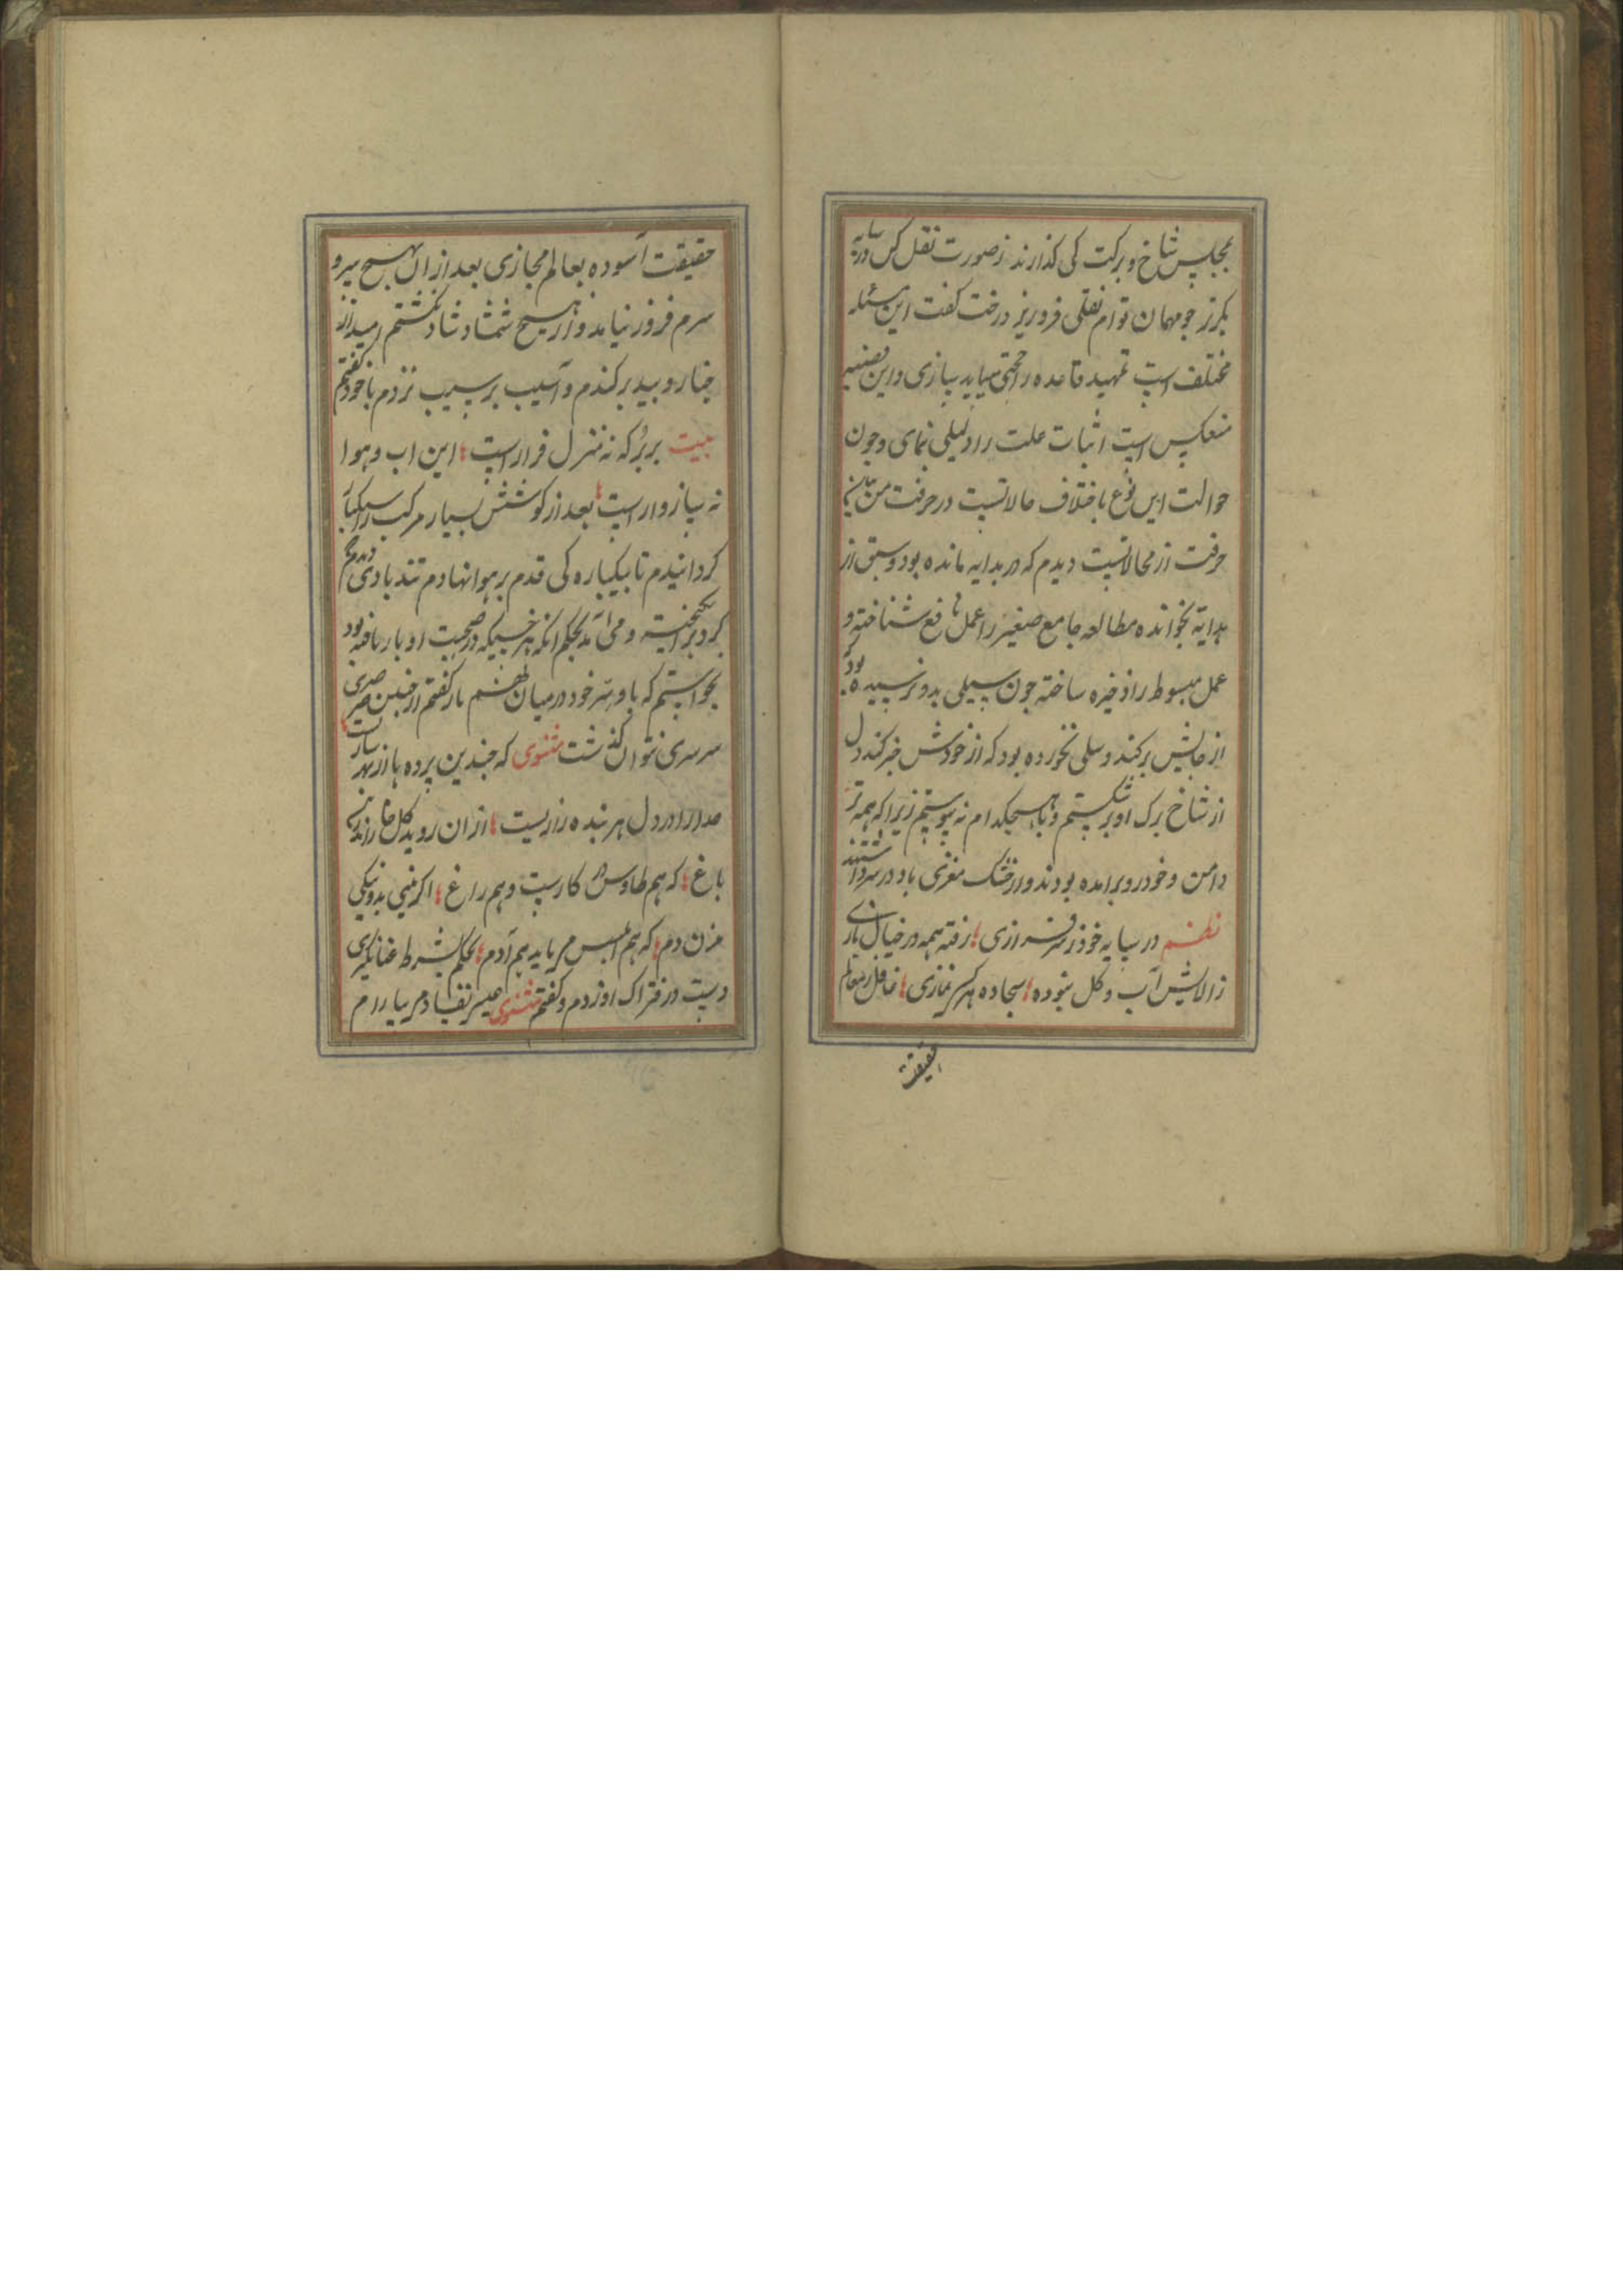 بمجلس شاخ و برکت کی کذارند ز صورت نقل کس در سایه
بکرز جو مهمان توام نقلی فروریز درخت کفت این مسئله
مختلف است تمهید قاعده را حجتی میباید بیازی و این قضیه
منعکس است اثبات علت را دلیلی نمای و چون
حوالت این نوع باختلاف حالاتست در حرفت من
حرفت از محالاتست دیدم که در بدایه مانده بود و سبق از
هدایة نخوانده مطالعه جامع صغیر را عمل نافع شناخته و
عمل مبسوط را ذخیره ساخته جون سیلی بدو نرسیده بود که
از جایش برکند و سلی نخورده بود که از خودش خبر کند دل
از شاخ برک او برشکستم و با هیجکدام نه پیوستم زیرا که همه تر
دامن و خودرو برامده بودند و از خشک مغزی باد در سر داشتند
نظم در سایه خود ز سرفرازی رفته همه در خیال بازی
ز الایش آب و کل نبوده سجاده هر کس نمازی غافل ز معالم
حقیقت
حقیقت آسوده بعالم مجازی بعد از آن بهیج سرو
سرم فرو نیامد و از هیچ شمشاد شاد نکشتم امید از
جنار و بید برکندم و آسیب بر سیب نزدم با خود کفتم
بیت بر پر که نه منزل قرار است این اب و هوا
نه سازوار است بعد از کوشش بسیار مرکب را سبکبار
کردانیدم تا بیکباره کی قدم بر هوا نهادم تند بادی دیدم
کرد برانکیخته و می آمد بحکم آنکه هر خسیکه در صحبت او بار یافته بود
بخواستم که با او سر خود در میان نهم باز کفتم از جنین صرصری
سرسری نتوان کذشت مثنوی که جندین پرده ها از بهر سازست
خدا را در دل هر بنده رازیست از ان روید کل و خار اندرین
باغ که هم طاوس در کارست و هم زاغ اکر بینی بدو نیکی
مزن دم که هم ابلیس می باید هم آدم بحکم شرط عنانکیری
دست در فتراک او زدم و کفتم مثنوی